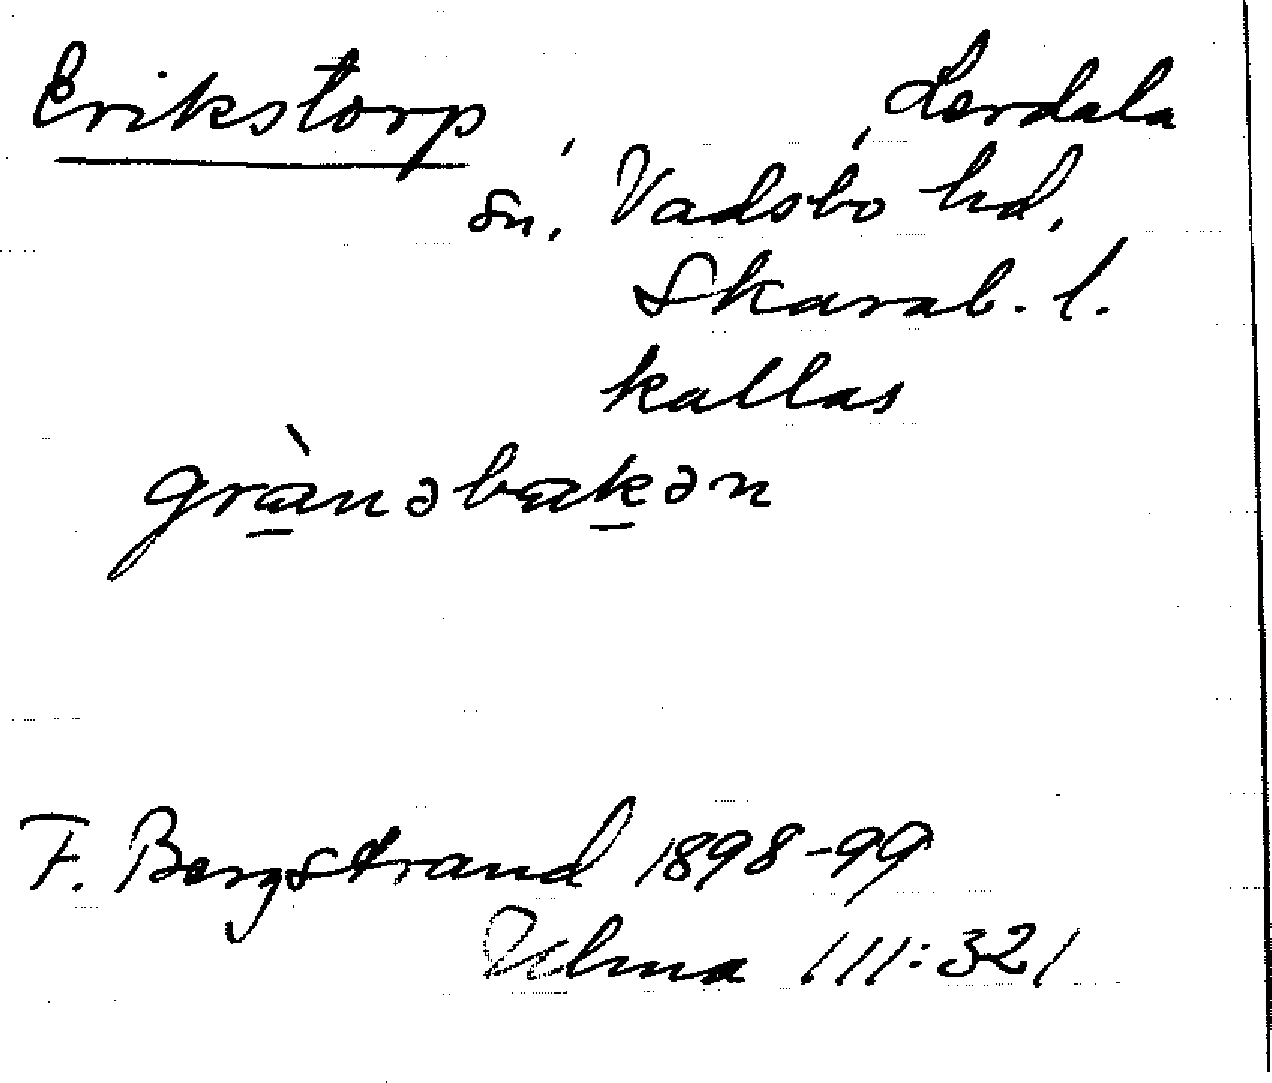 Erikstorp, Lerdala
sn, Vadsbo hd,
Skarab. l.
kallas
grànəbakən
F. Bergstrand 1898-99
Ulma 111:321